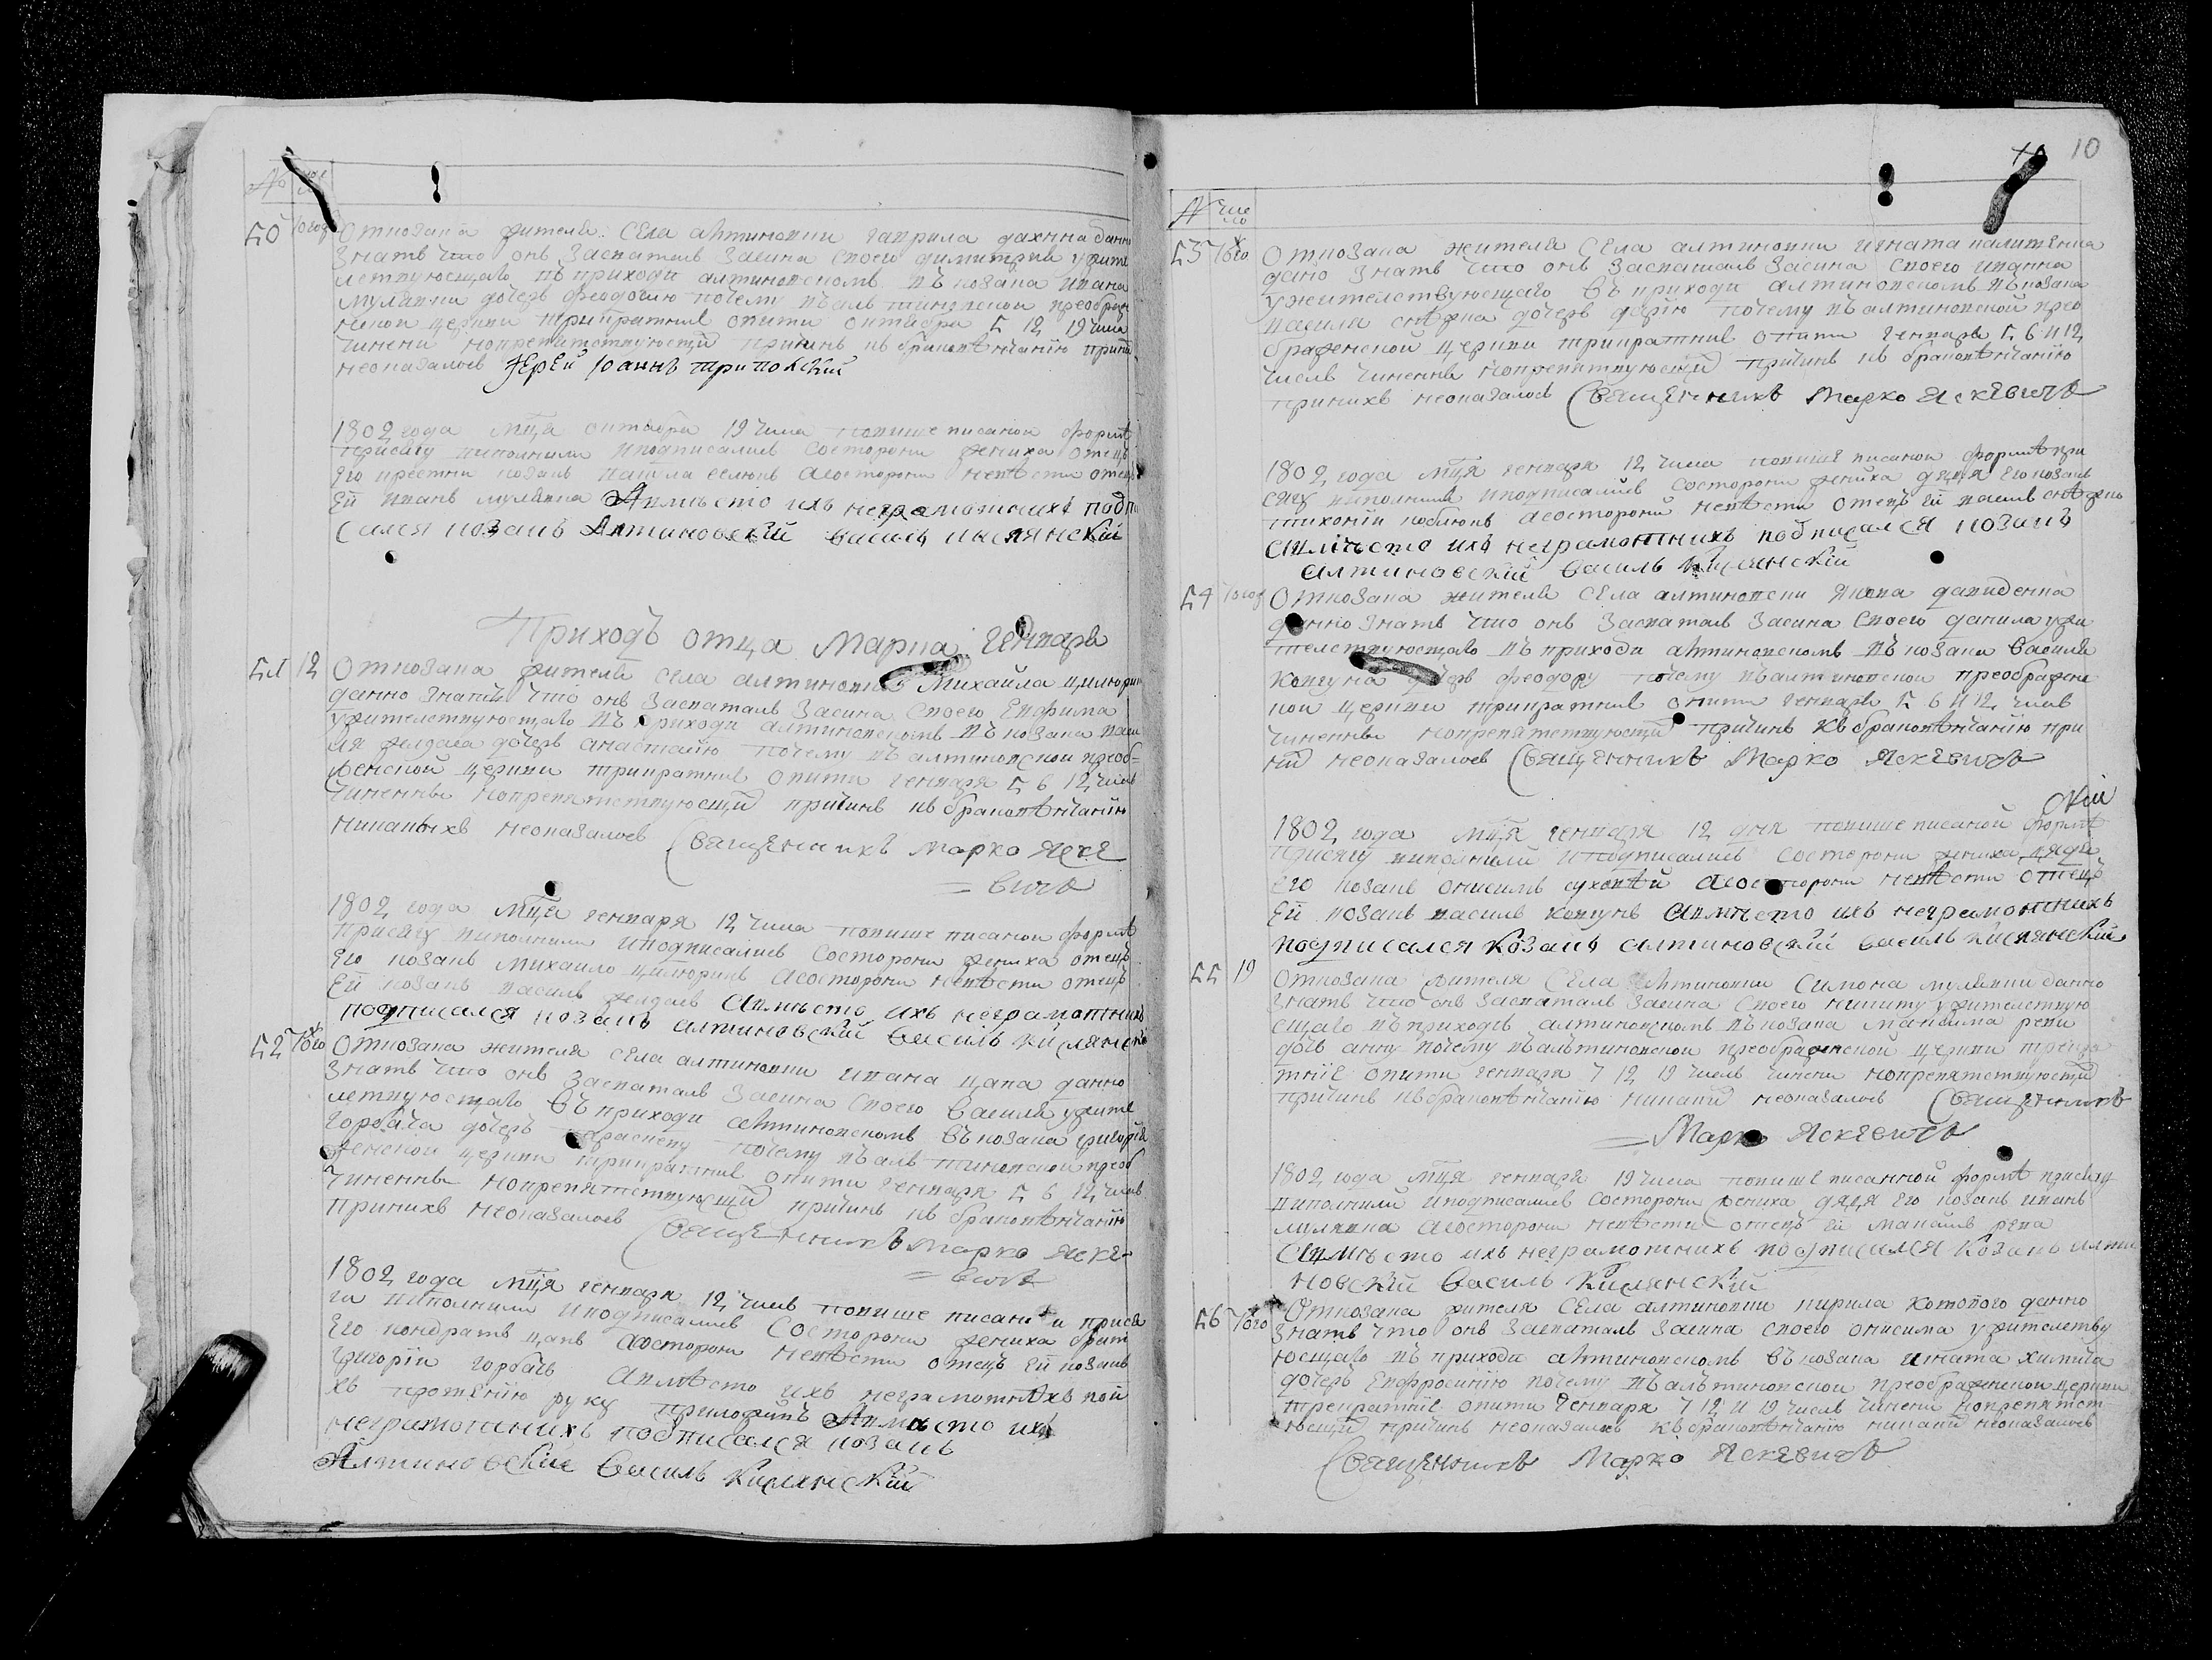 № число
50 того Отковака жителя села алтиновки гаврила дахнна данно
знать что онъ засваталъ засина своего димитрия ужите
летвующаго въ приходи алтиновскомъ въ козака ивана
мулявки дочерь феодосию почему въ алтиновской преображ
нской церкви трикратние опити октября 5 12 19 числа
чинени нопрепятствующей причинъ къ браковѣнчанию
неоказалось Іерей Іоаннъ триполский
1802 года мця октября 19 числа повише писанои формѣ
присягу виполнили иподписались состорони жениха отецъ
его крестни козакъ павла асосторони невѣсти отецъ
ей иванъ мулявка Авмѣсто ихъ неграмотнихъ подпи
сался козакъ Алтиновский василь кислянский
Приходъ отца Марка Генваря
51 12 Откозака жителя села алтиновки Михайла цилюрик
данно знать что онъ засваталъ засина своего Евфима
ужителствующаго въ приходи алтиновскомъ въ козака васи
ля желдака дочерь анастасию почему въ алтиновской преоб=
женской церкви трикратние опити генваря 5 6 12 числъ
чиненни нопрепятствующей причинъ къ браковѣнчанию
никакихъ неоказалось Священникъ Марко Яске
= вичъ
1802 года мця генваря 12 числа повише писанои формѣ
присягу виполнили иподписались состорони жениха отецъ
его козакъ михайло цилюрикъ асосторони невѣсти отецъ
ей козакъ василь желдакъ Авмѣсто ихъ неграмотнихъ
подписался козакъ алтиновский василь кислянский
52 того Откозака жителя села алтиновки ивана цапа данно
знать что онъ засваталъ засина своего василя ужите
летвующаго въ приходи алтиновскомъ въ козака григория
горбача дочерь параскеву почему въ алтиновской преоб
женской церкви трикратние опити генваря 5 6 12 числъ
чиненни нопрепятствующей причинъ къ браковѣнчанию
принихъ неоказалось Священникъ Марко Яске=
= вичъ
1802 года мця генваря 12 числъ повише писани и прися
ги виполнили иподписались состорони жениха братъ
его кондратъ цапъ асосторони невѣсти отецъ ей козакъ
григорий горбачъ Авмѣсто ихъ неграмотнѣхъ
хъ прошению руку приложилъ Авмѣсто ихъ
неграмотнихъ подписался козакъ
Алтиновский Василь Кислянский
10
№ число
53 того Откозака жителя села алтиновки игната
дано знать что онъ засваталъ засина своего иванна
ужителствующаго въ приходи алтиновскомъ въ козака
василя дочерь дарию почему въ алтиновской прео
браженской церкви трикратние опити генваря 5 6 и 12
числъ чиненни нопрепятствующей причинъ къ браковѣнчанию
принихъ неоказалось Священникъ Марко Яскевичъ
1802 года мця генваря 12 числа повише писанои формѣ при
сягу виполнили иподписались состорони жениха дядя его козакъ
тихоний асосторони невѣсти отецъ ей василь
Авмѣсто ихъ неграмотнихъ подписался козакъ
алтиновский василь Кислянский
54 того Откозака жителя села алтиновски якова давиденка
данно знать что онъ засваталъ засина своего данила ужи
телствующаго въ приходи алтиновскомъ въ козака василя
ковтуна дочерь феодору почему въ алтиновской преображен
кои церкви трикратние опити генваря 5 6 и 12 числъ
чиненни нопрепятствующей причинъ къ браковѣнчанию при
ний неоказалось Священникъ Марко Яскевичъ
1802 года мця генваря 12 дня повише писаной формѣ
присягу виполнили иподписались состорони жениха дядя
его козакъ онисимъ асосторони невѣсти отецъ
ей козакъ василь ковтунъ Авмѣсто ихъ неграмотнихъ
подписался козакъ алтиновский василь кислянский
55 19 Откозака жителя села алтиновки симона мулявки данно
знать что онъ засваталъ засина своего никиту ужителствую
щаго въ приходѣ алтиновскомъ въ козака максима репи
дочь анну почему въ алтиновской преображенской церкви трикра
тние опити генваря 7 12 19 числъ чинени нопрепятствующей
причинъ къ браковѣнчанию никакий неоказалось Священникъ
= Марко Яскевичъ
1802 года мця генваря 19 числа повише писанной формѣ присягу
виполнили иподписались состорони жениха дядя его козакъ иванъ
мулявка асосторони невѣсти отецъ ей максимъ репа
Авмѣсто ихъ неграмотнихъ подписался козакъ алти
новский василь Кислянский
56 того Откозака жителя села алтиновки кирила котового данно
знать что онъ засваталъ засина своего онисима ужителству
ющаго въ приходи алтиновскомъ въ козака игната химича
дочерь Евфросинию почему въ алтиновской преображенской церкви
трикратние опити генваря 7 12 и 19 числъ чинени нопрепятст
ющей причинъ неоказалось къ браковѣнчанию никакий неоказалось
Священникъ Марко Яскевичъ